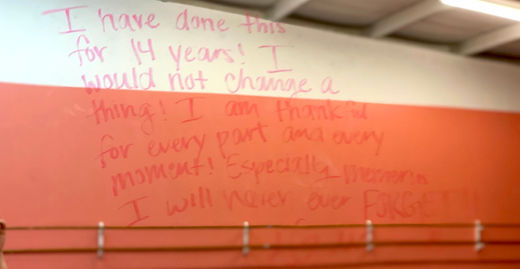 I have done this
for 14 years! I
would not change a
thing! I am thankful
for every part and every
moment! Especially memories
I will never ever FORGET!!